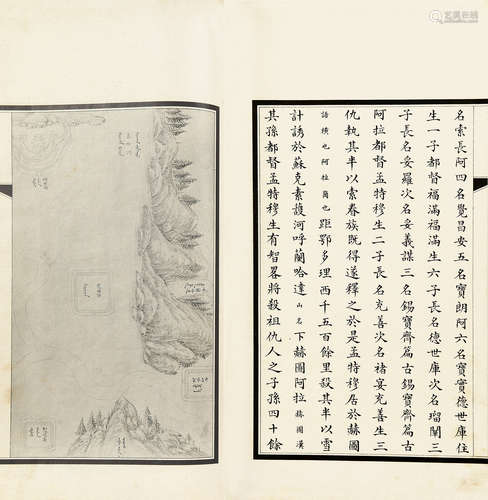 其孫都督孟特穆生有智畧將殺祖仇人之子孫四十餘
計誘於蘇克素護河呼蘭哈達山名下赫圖阿拉赫圖漢
語橫也阿拉崗也距鄂多理西千五百餘里殺其半以雪
仇執其半以索眷族既得遂釋之於是孟特穆居於赫圖
阿拉都督孟特穆生二子長名充善次名褚宴充善生三
子長名妥羅次名妥義謀三名錫寶齊篇古錫寶齊篇古
生一子都督福滿福滿生六子長名德世庫次名瑠闡三
名索長阿四名覺昌安五名寶朗阿六名寶實德世庫住